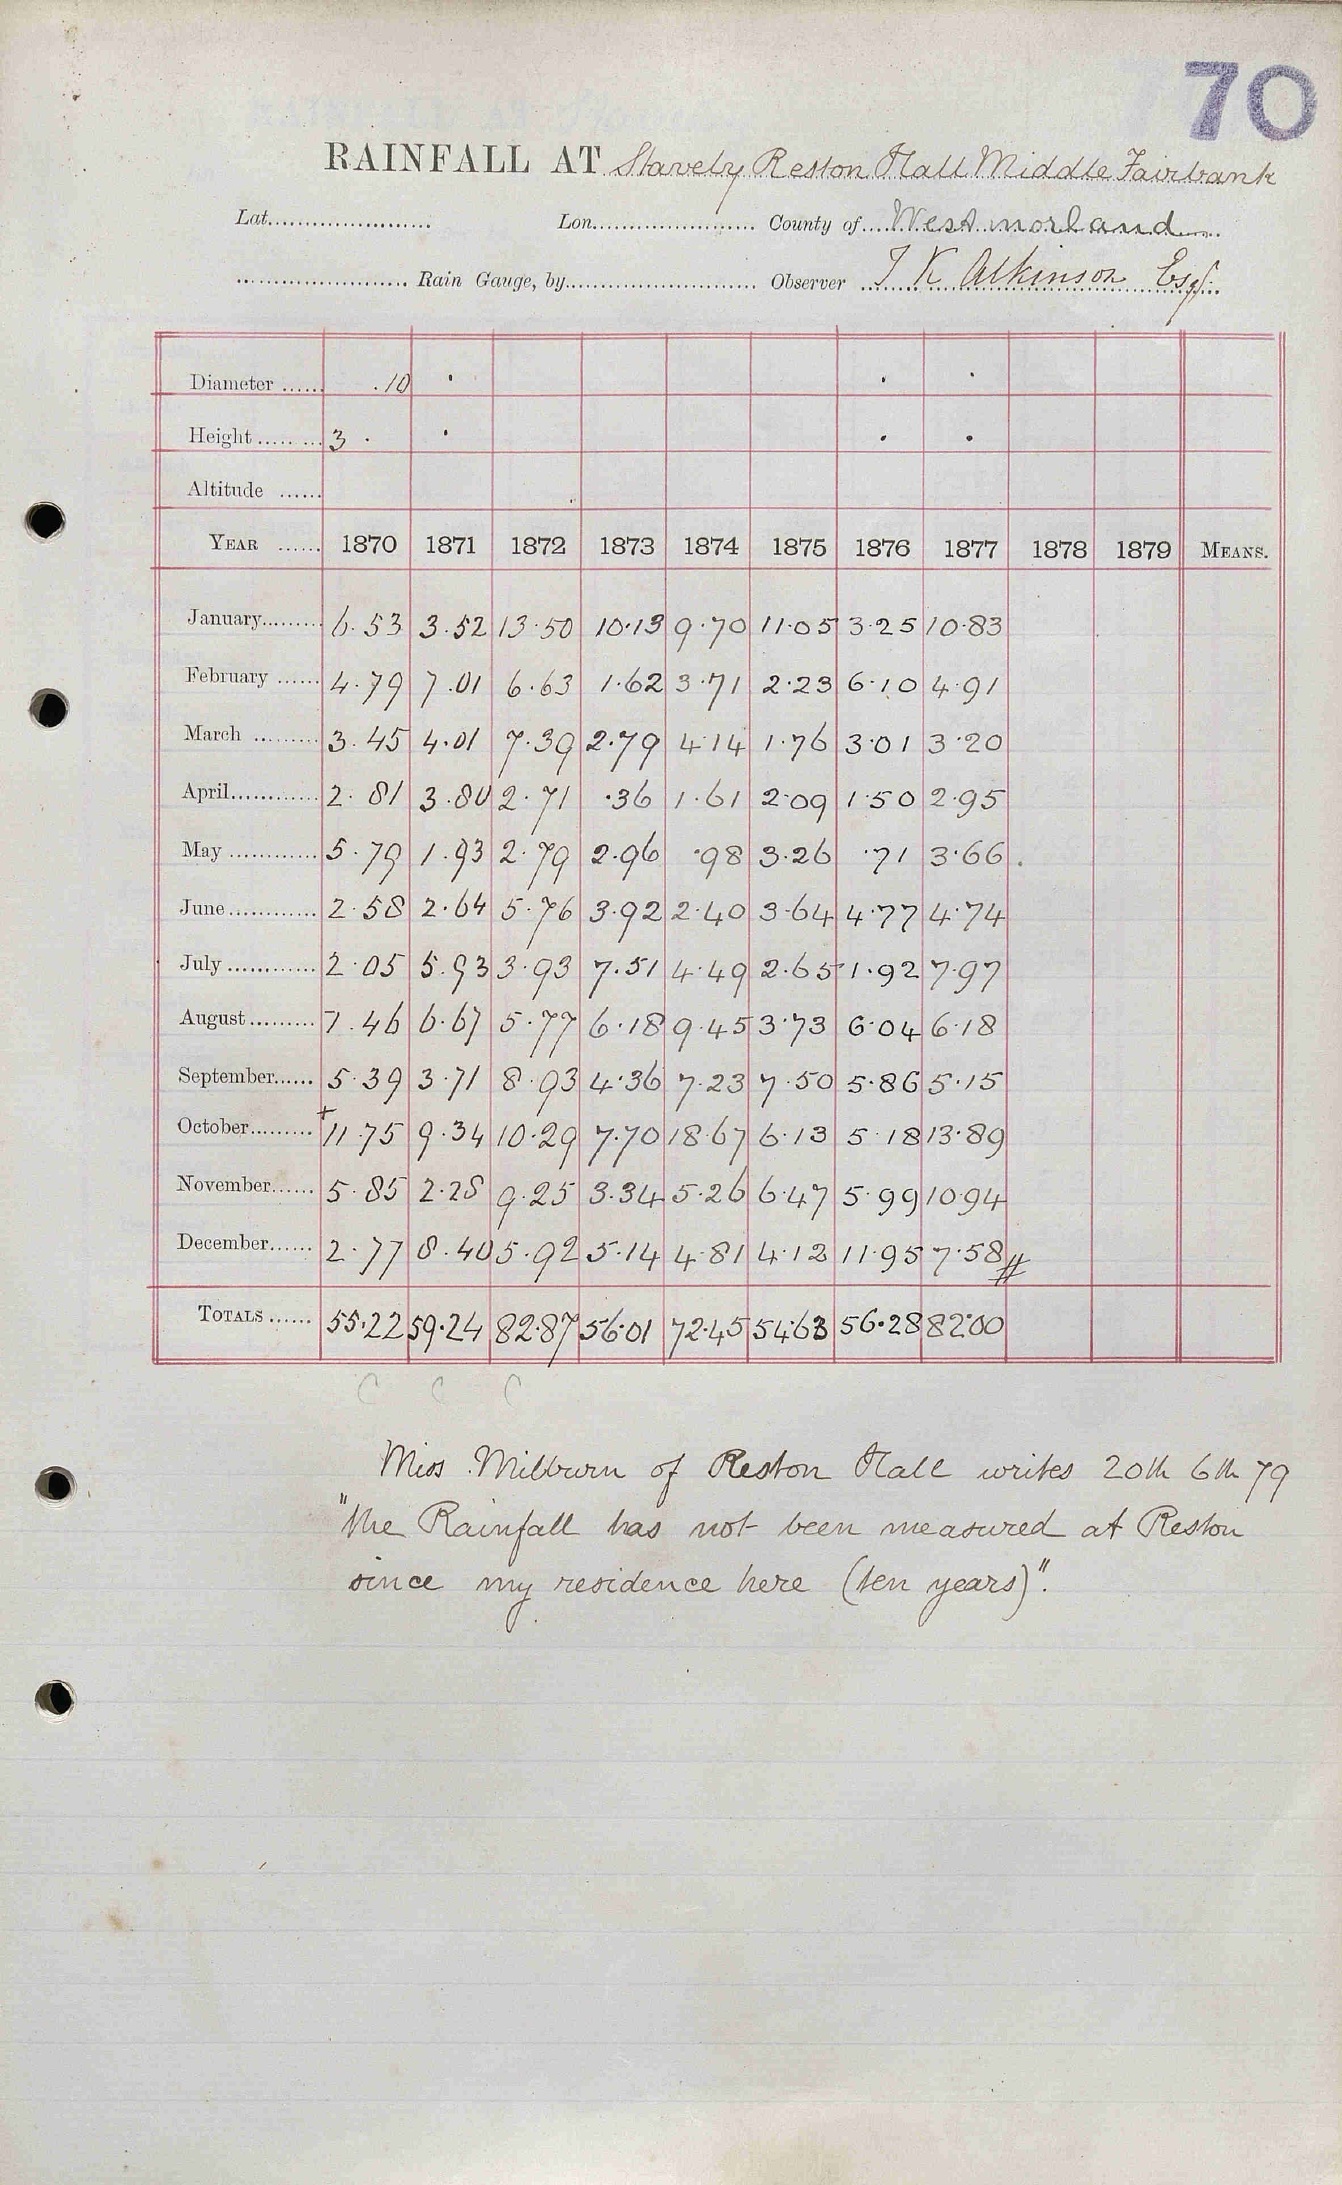 70
RAINFALL AT Stavely Reston Hall Middle Fairbank
Lat. Lon. County of Westmorland
Rain Gauge, by Observer T K Atkinson Esq.
Diameter ...... .10 . . .
Height ...... 3 . . . .
Altitude ......
YEAR ...... 1870 1871 1872 1873 1874 1875 1876 1877 1878 1879 MEANS.
January 6.53 3.52 13.50 10.13 9.70 11.05 3.25 10.83
February 4.79 7.01 6.63 1.62 3.71 2.23 6.10 4.91
March 3.45 4.01 7.39 2.79 4.14 1.76 3.01 3.20
April 2.81 3.80 2.71 .36 1.61 2.09 1.50 2.95
May 5.79 1.93 2.79 2.96 .98 3.26 .71 3.66
June 2.58 2.64 5.76 3.92 2.40 3.64 4.77 4.74
July 2.05 5.93 3.93 7.51 4.49 2.65 1.92 7.97
August 7.46 6.67 5.77 6.18 9.45 3.73 6.04 6.18
September 5.39 3.71 8.93 4.36 7.23 7.50 5.86 5.15
October + 11.75 9.34 10.29 7.70 18.67 6.13 5.18 13.89
November 5.85 2.28 9.25 3.34 5.26 6.47 5.99 10.94
December 2.77 8.40 5.92 5.14 4.81 4.12 11.95 7.58 //
TOTALS 55.22 59.24 82.87 56.01 72.45 54.63 56.28 82.00
C C C
Miss Milburn of Reston Hall writes 20th 6th 79
"the Rainfall has not been measured at Reston
since my residence here (ten years)".